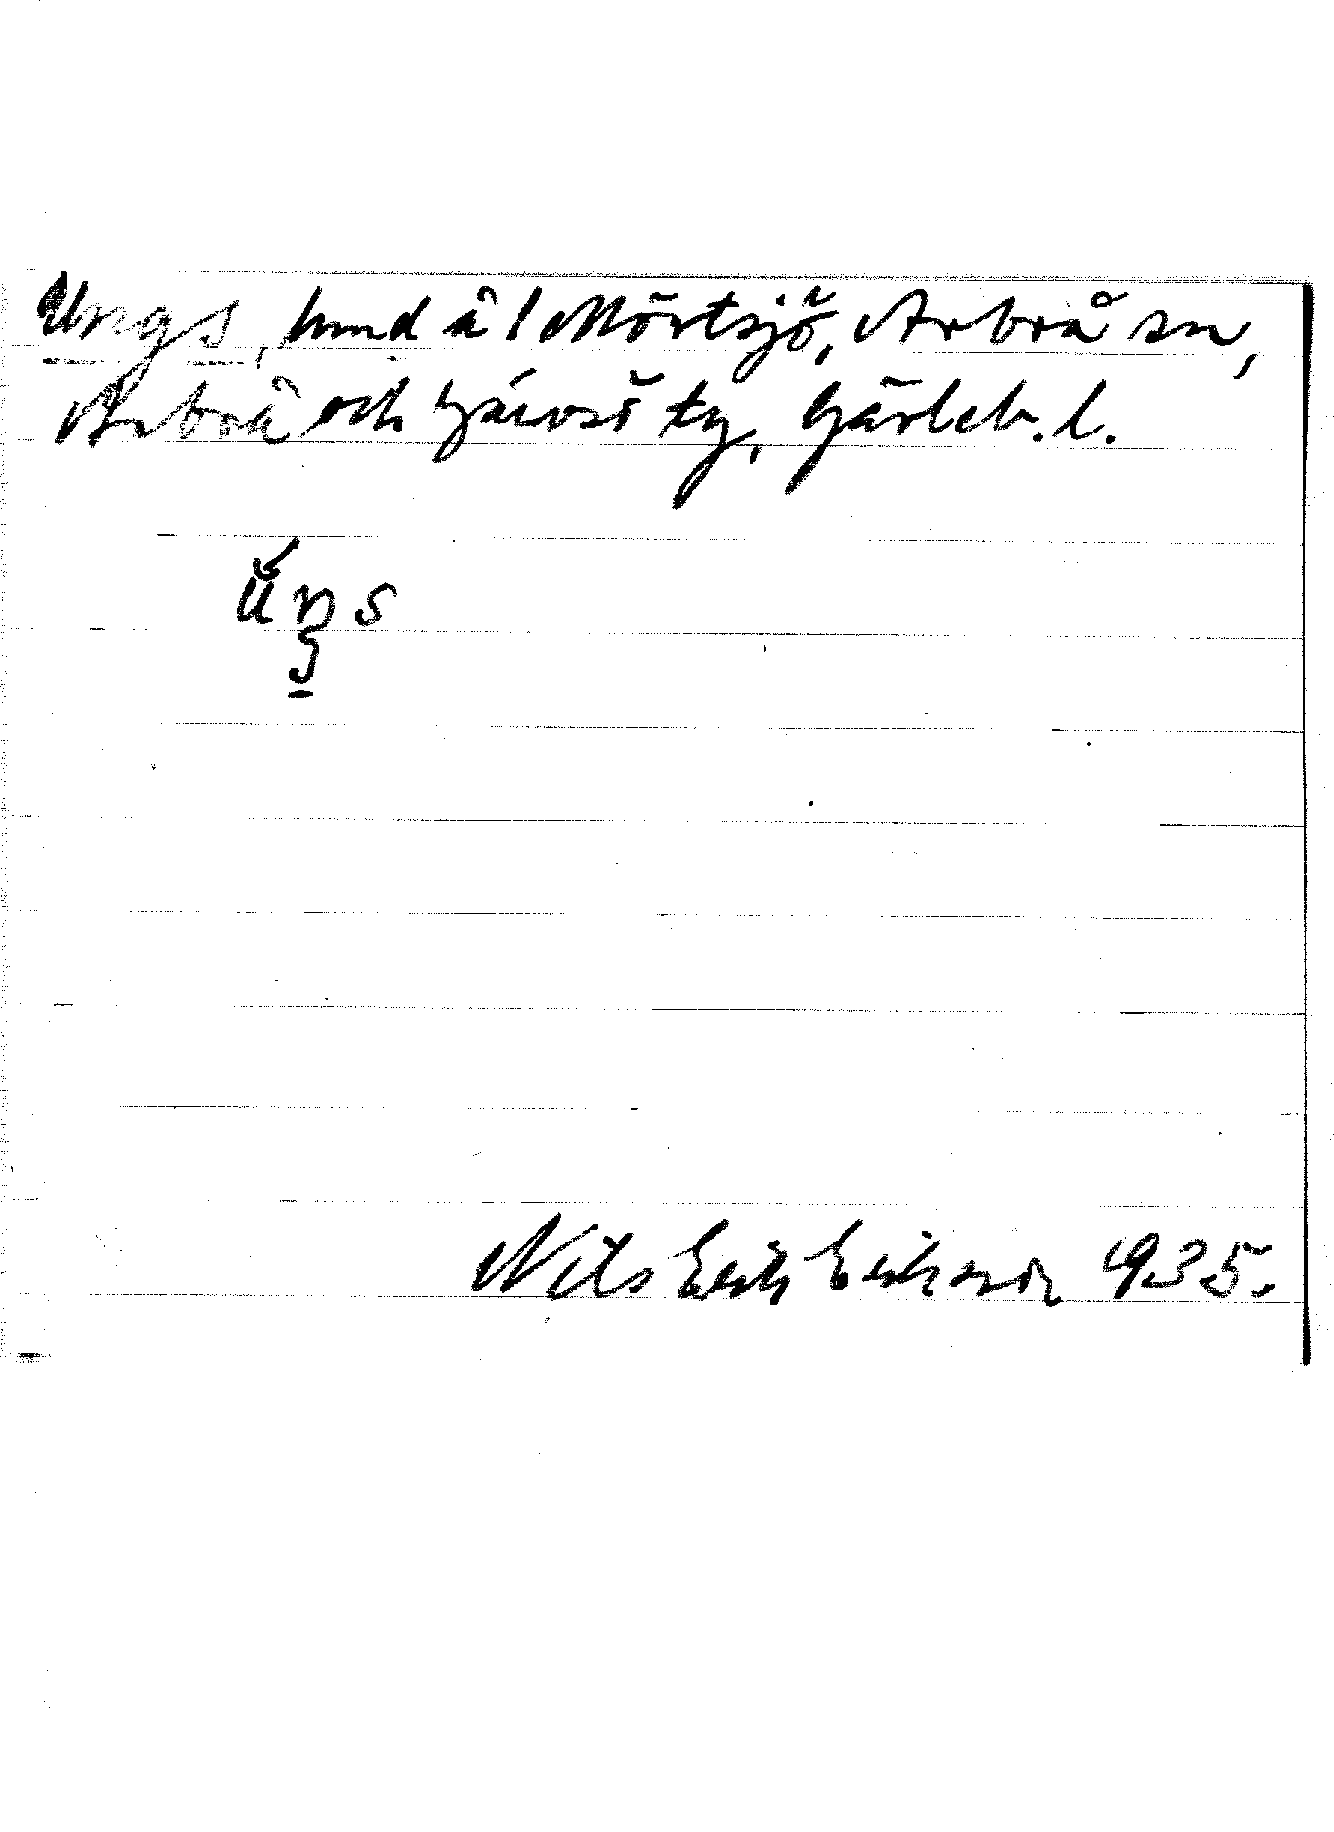 Ungs, hmd å 1 Mörtsjö, Arbrå sn,
Arbrå och Järvsö tg, Gävleb. l.
Nils Erik Eriksson 1935.